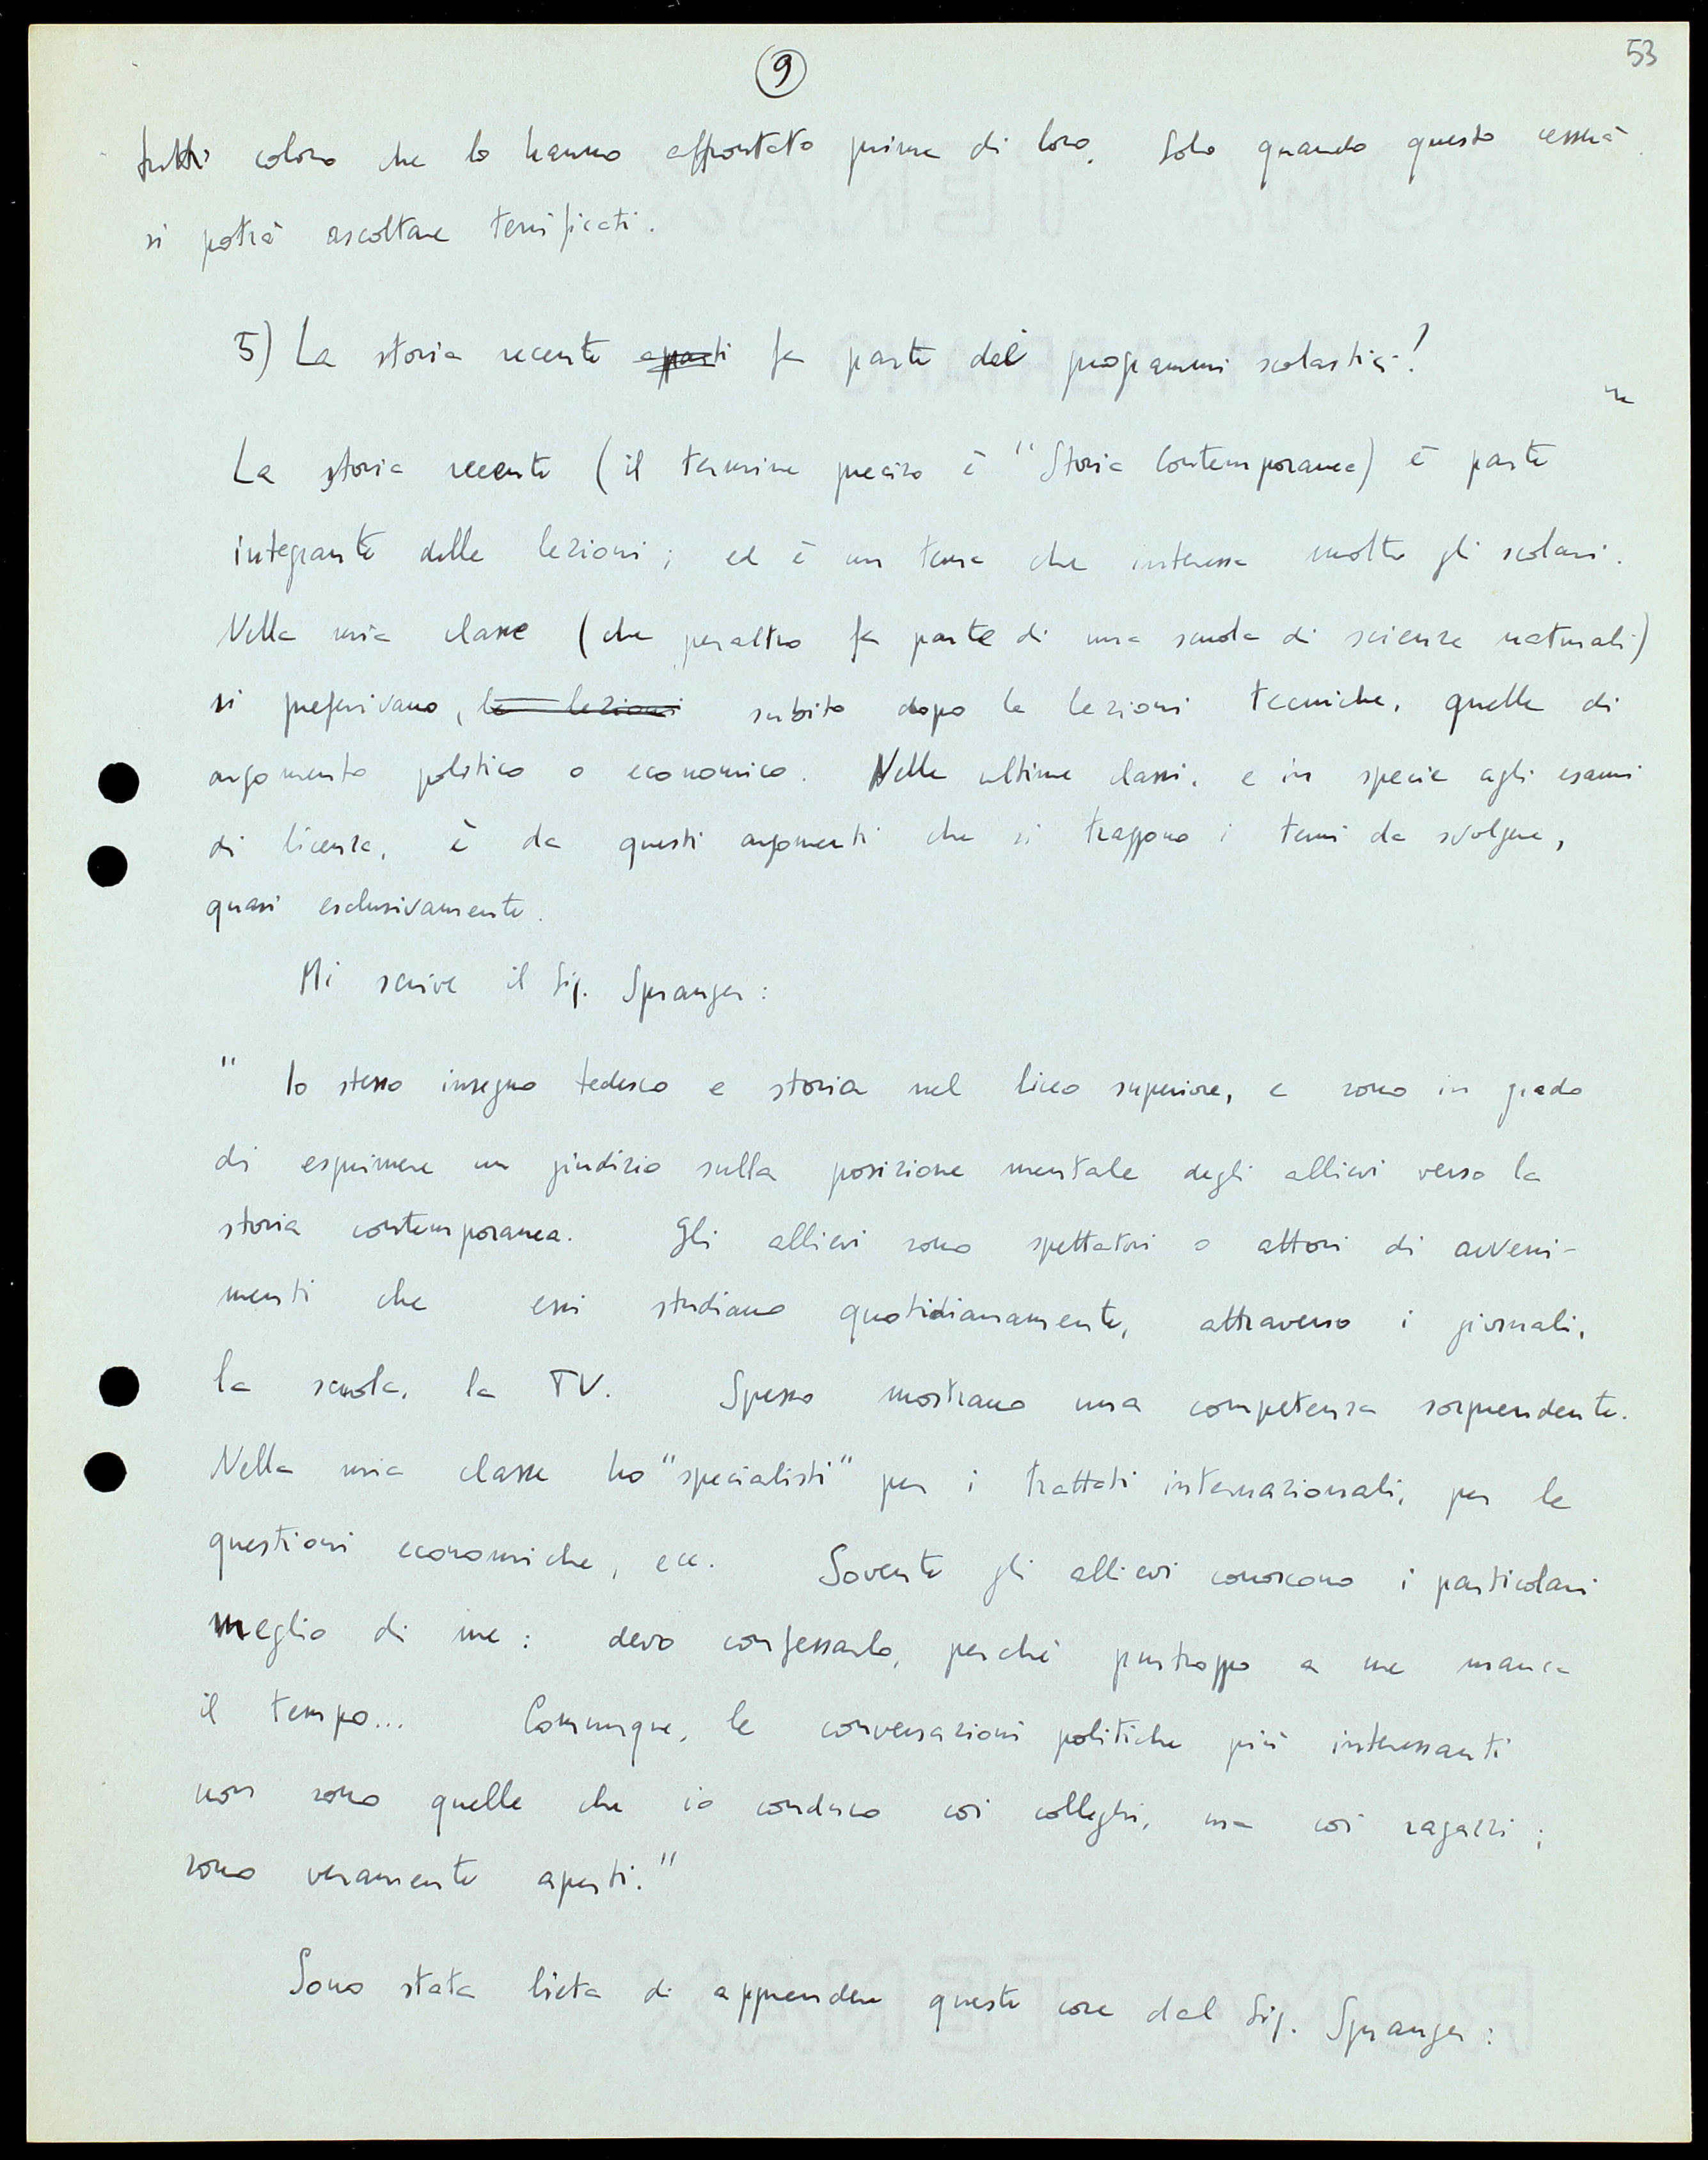 9
53
tutti coloro che lo hanno affrontato prima di loro. Solo quando questo cesserà
si potrà ascoltare
5) La storia recente fa parte dei programmi scolastici?
La storia recente (il termine preciso è "Storia Contemporanea) è parte
integrante delle lezioni; ed è un tema che interessa molto gli scolari.
Nella mia classe (che peraltro fa parte di una scuola di scienze naturali)
si preferivano, le lezioni subito dopo le lezioni tecniche, quelle di
argomento politico o economico. Nelle ultime classi, e in specie agli esami
di licenza, è da questi argomenti che si traggono i temi da svolgere,
quasi esclusivamente.
Mi scrive il Sig. Spranger:
" Io stesso insegno tedesco e storia nel liceo superiore, e sono in grado
di esprimere un giudizio sulla posizione mentale degli allievi verso la
storia contemporanea. Gli allievi sono spettatori o attori di avveni-
menti che essi studiano quotidianamente, attraverso i giornali,
la scuola, la TV. Spesso mostrano una competenza sorprendente.
Nella mia classe ho "specialisti" per i trattati internazionali, per le
questioni economiche, ecc. Sovente gli allievi conoscono i particolari
meglio di me: devo confessarlo, perchè purtroppo a me manca
il tempo... Comunque, le conversazioni politiche più interessanti
non sono quelle che io conduco coi colleghi, ma coi ragazzi;
sono veramente aperti."
Sono stata lieta di apprendere queste cose dal Sig. Spranger: